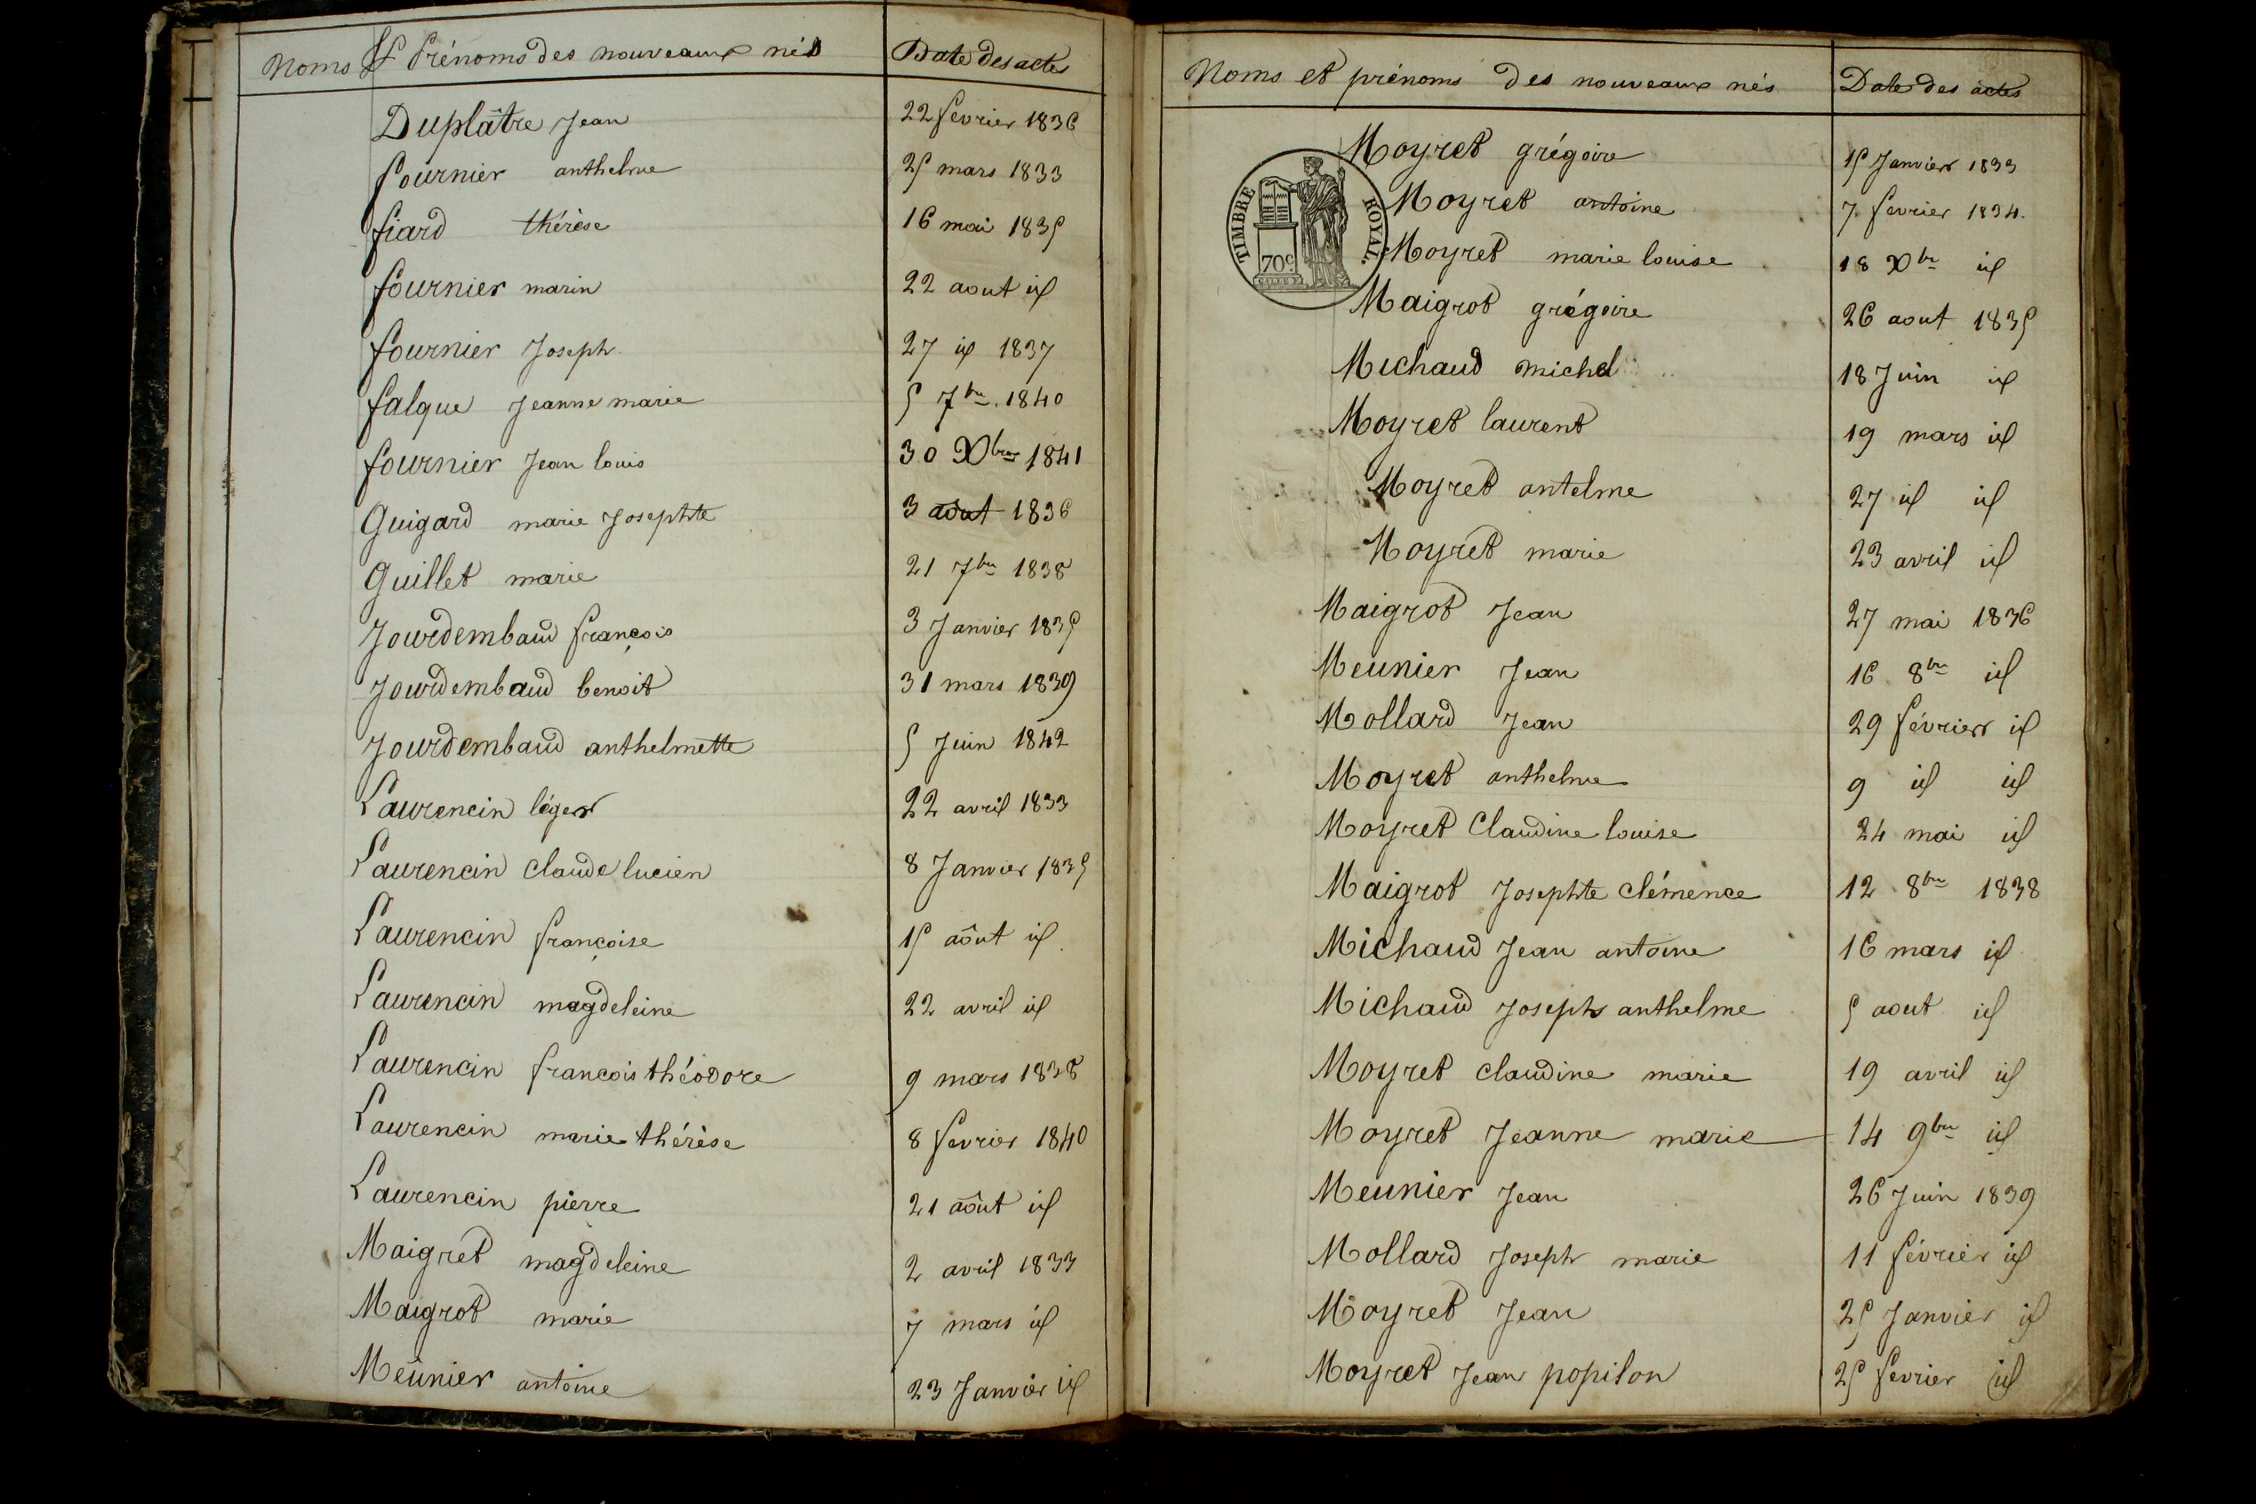 Noms et Prénoms des nouveaux nés Date des actes
Duplatre Jean 22 fevrier 1836
fournier anthelme 25 mars 1833
fiard thérèse 16 mai 1835
fournier marin 22 aout id
fournier Joseph 27 id 1837
falque Jeanne marie 5 7bre 1840
fournier Jean louis 30 Xbre 1841
Guigard marie Josephte 3 aout 1836
Guillet marie 21 7bre 1838
Jourdembaud françois 3 Janvier 1835
Jourdembaud benoit 31 mars 1839
Jourdembaud anthelmette 5 Juin 1842
Laurencin léger 22 avril 1833
Laurencin claude lucien 8 Janvier 1835
Laurencin françoise 15 aôut id
Laurencin magdeleine 22 avril id
Laurencin francois théodore 9 mars 1838
Laurencin marie thérèse 8 fevrier 1840
Laurencin pierre 21 aôut id
Maigret magdeleine 2 avril 1833
Maigrot marie 7 mars id
Meunier antoine 23 Janvier id
Noms et prénoms des nouveaux nés Date des actes
Moyret grégoire 15 Janvier 1833
Moyret antoine 7 fevrier 1834
Moyret marie louise 18 Xbre id
Maigrot grégoire 26 aout 1835
Michaud michel 18 Juin id
Moyret laurent 19 mars id
Moyret antelme 27 id id
Moyret marie 23 avril id
Maigrot Jean 27 mai 1836
Meunier Jean 16 8bre id
Mollard Jean 29 février id
Moyret anthelme 9 id id
Moyret Claudine louise 24 mai id
Maigrot Josephte clémence 12 8bre 1838
Michaud Jean antoine 16 mars id
Michaud Joseph anthelme 5 aout id
Moyret claudine marie 19 avril id
Moyret Jeanne marie 14 9bre id
Meunier Jean 26 Juin 1839
Mollard Joseph marie 11 février id
Moyret Jean 25 Janvier id
Moyret Jean popilon 25 fevrier id
TIMBRE ROYAL.
70c.